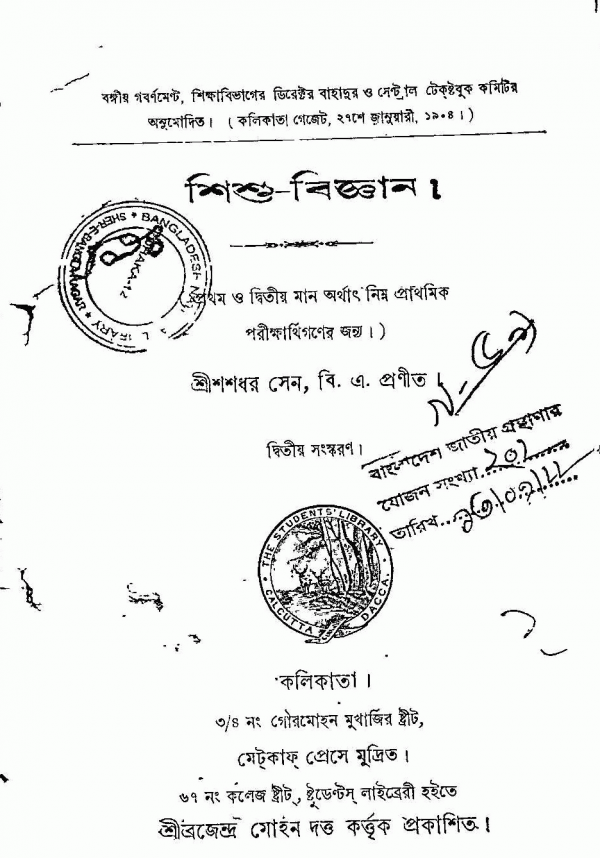 বঙ্গীয় গবর্ণমেণ্ট, শিক্ষাবিভাগের ডিরেক্টর বাহাদুর ও সেণ্ট্রাল টেক্‌ষ্টবুক কমিটির
অনুমোদিত। ( কলিকাতা গেজেট, ২৭শে জানুয়ারী, ১৯০৪। )
শিশু-বিজ্ঞান।
BANGLADESH
DHAKA-12
(প্রথম ও দ্বিতীয় মান অর্থাৎ নিম্ন প্রাথমিক
পরীক্ষার্থিগণের জন্য।)
শ্রীশশধর সেন, বি. এ. প্রণীত।
দ্বিতীয় সংস্করণ।
বাংলাদেশ জাতীয় গ্রন্থাগার
যোজন সংখ্যা
তারিখ
THE STUDENTS' LIBRARY
CALCUTTA DACCA.
কলিকাতা।
৩/৪ নং গৌরমোহন মুখার্জির ষ্ট্রীট,
মেট্‌কাফ্ প্রেসে মুদ্রিত।
৬৭ নং কলেজ ষ্ট্রীট্, ষ্টুডেণ্টস্ লাইব্রেরী হইতে
শ্রীব্রজেন্দ্র মোহন দত্ত কর্ত্তৃক প্রকাশিত।